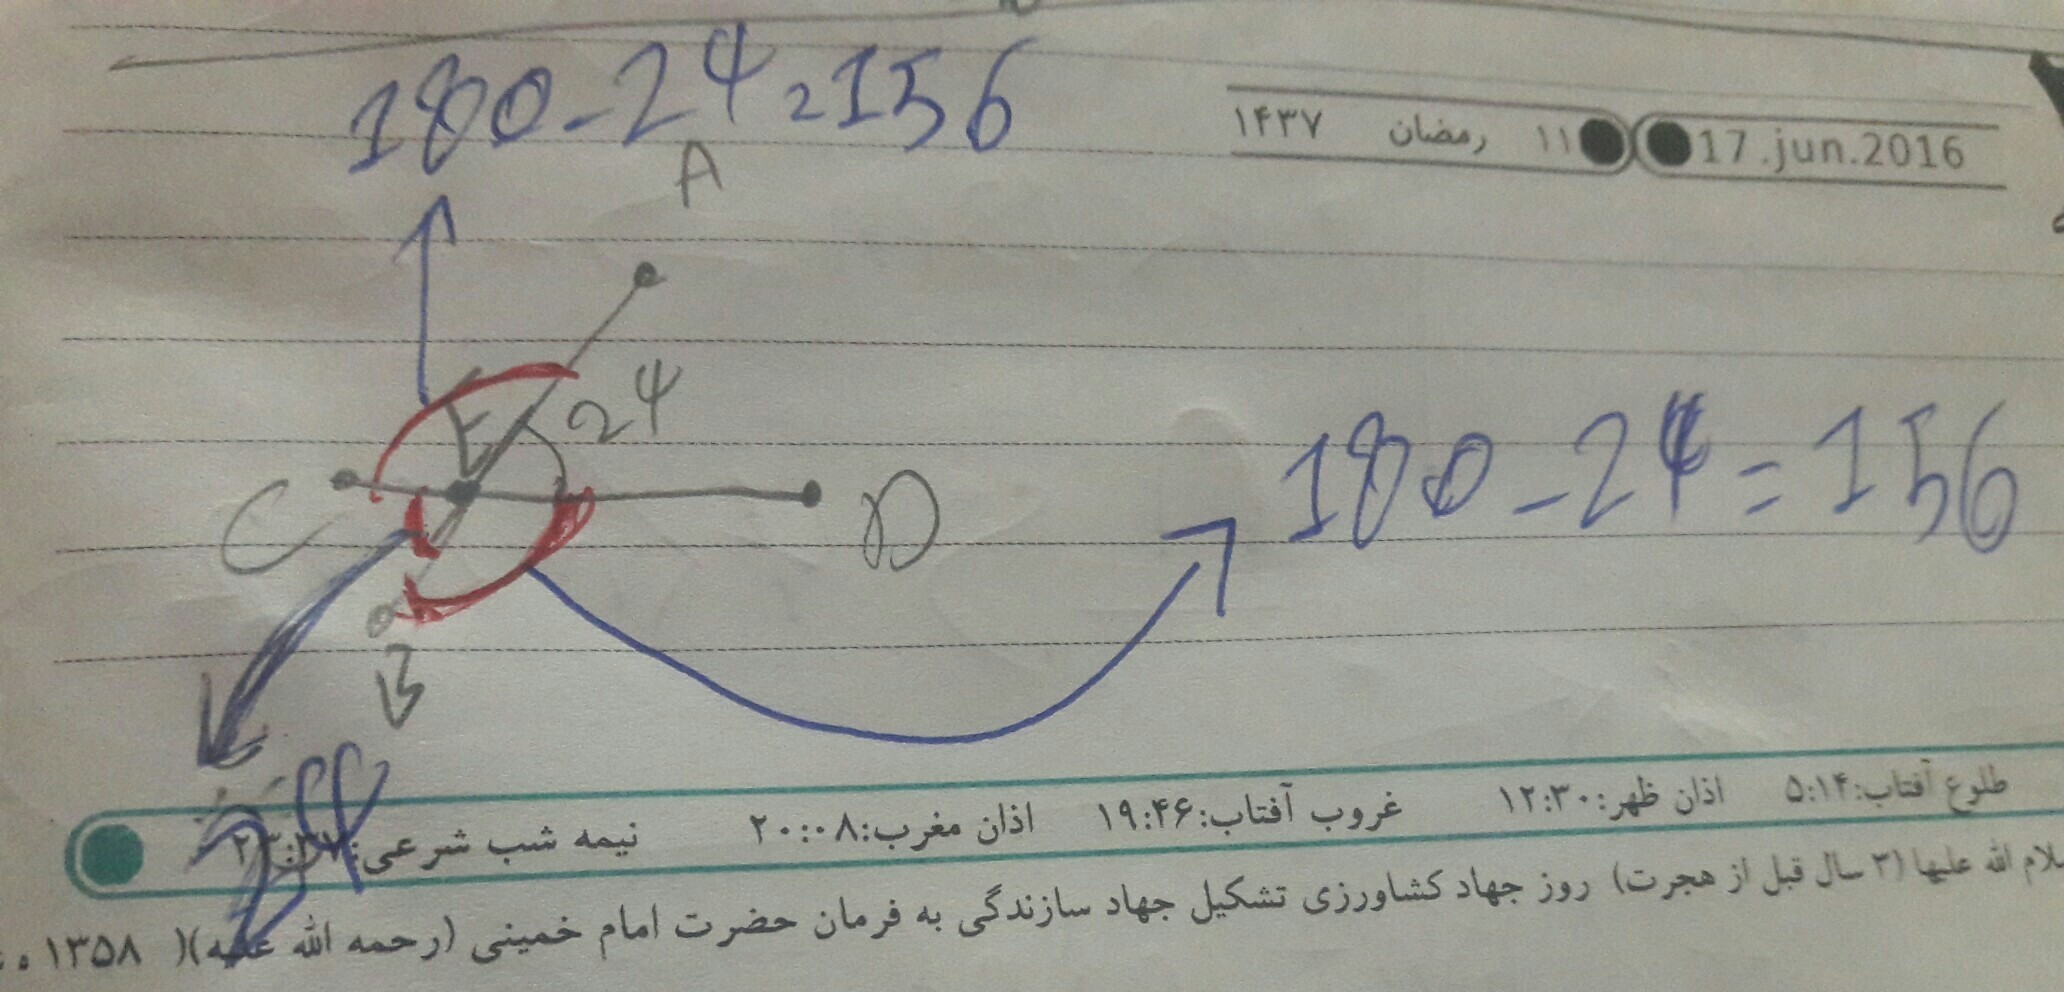 180-24=156
۱۴۳۷ رمضان ۱۱ 17.jun.2016
A
E 24
C D
180-24=156
B
24
طلوع آفتاب:۵:۱۴ اذان ظهر:۱۲:۳۰ غروب آفتاب:۱۹:۴۶ اذان مغرب:۲۰:۰۸ نیمه شب شرعی:
الله علیها (۳ سال قبل از هجرت) روز جهاد کشاورزی تشکیل جهاد سازندگی به فرمان حضرت امام خمینی (رحمه الله علیه)( ۱۳۵۸